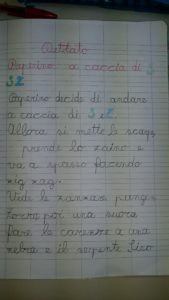 Dettato
Paperino: a caccia di S
S Z
Paperino decide di andare
a caccia di S e Z.
Allora si mette le scarpe
prende lo zaino e
va a spasso facendo
zig zag.
Vede le zanzare punge
per una suora
fare le carezze a una
zebra e il serpente Siro